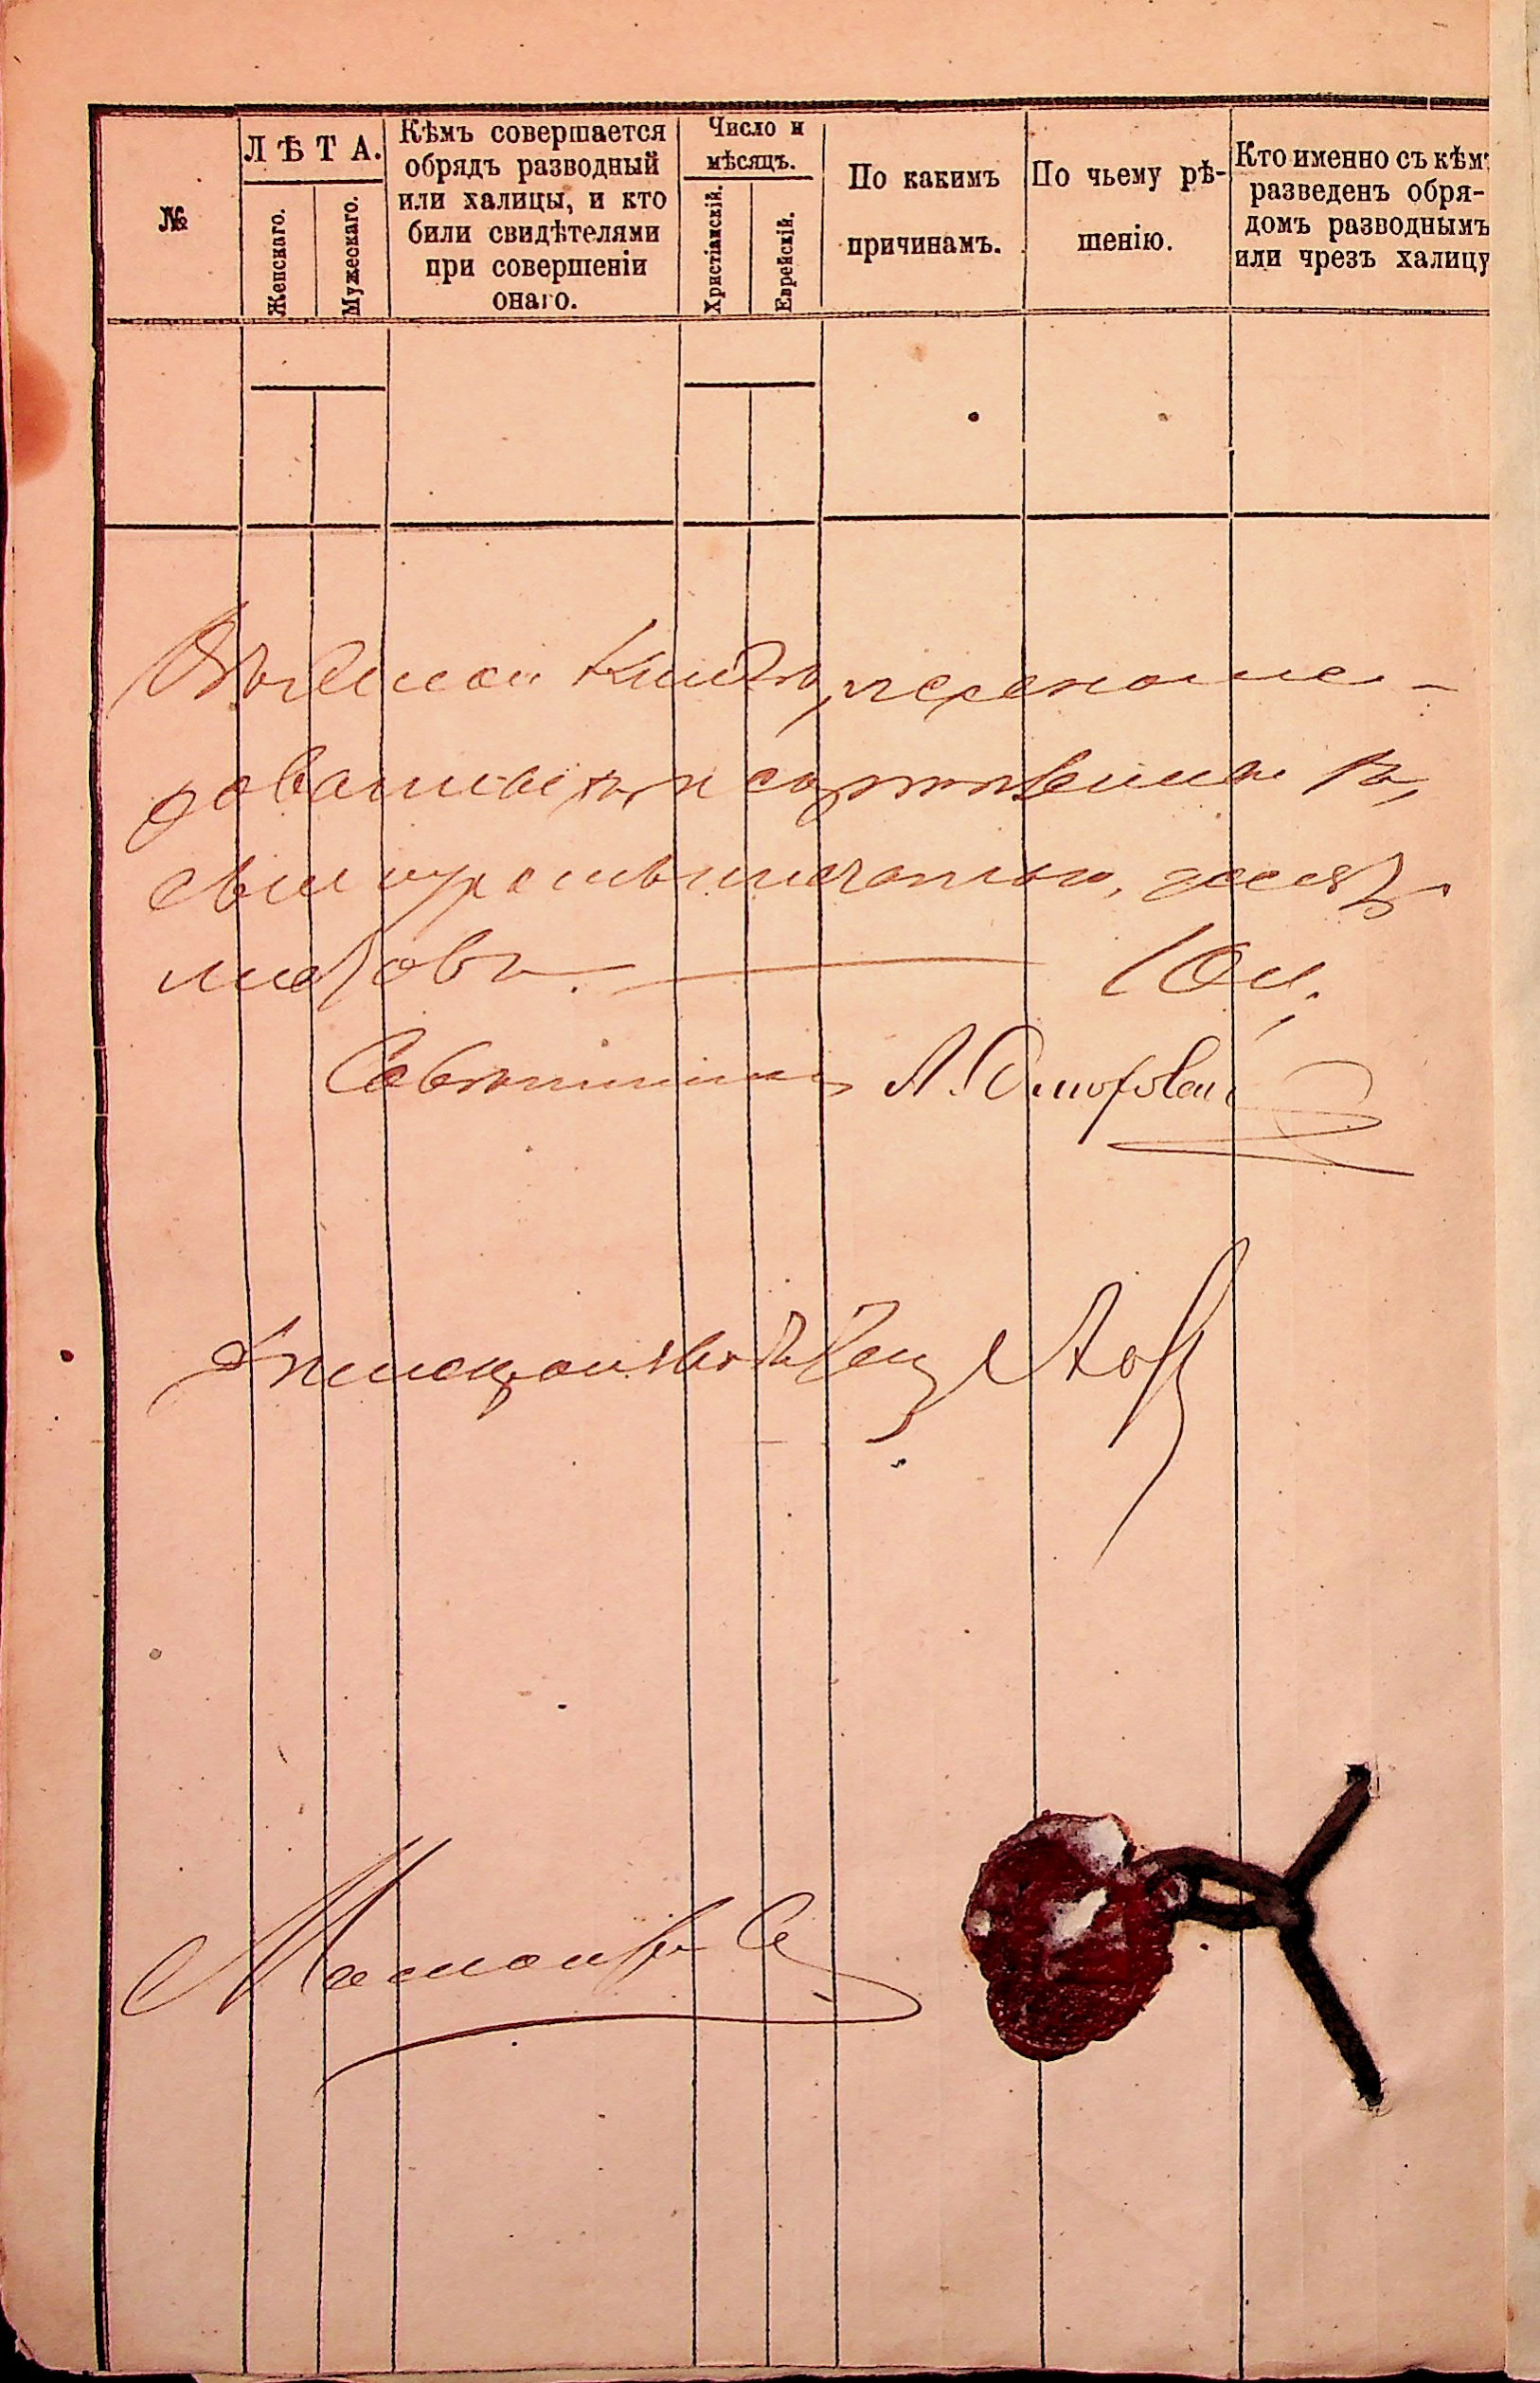 №
ЛѢТА.
Женскаго.
Мужескаго.
Кѣмъ совершается
обрядъ разводный
или халицы, и кто
били свидѣтелями
при совершеніи
онаго.
Число и
мѣсяцъ.
Христіанскій.
Еврейскій.
По какимъ
причинамъ.
По чьему рѣ-
шенію.
Кто именно съ кѣмъ
разведенъ обря-
домъ разводнымъ
или чрезъ халицу
Въ сей книгѣ, перенуме-
рованныхъ и скрѣпленныхъ
печатью, десять
листовъ. 10 л.
Совѣтникъ А.
Дѣлопроизводитель